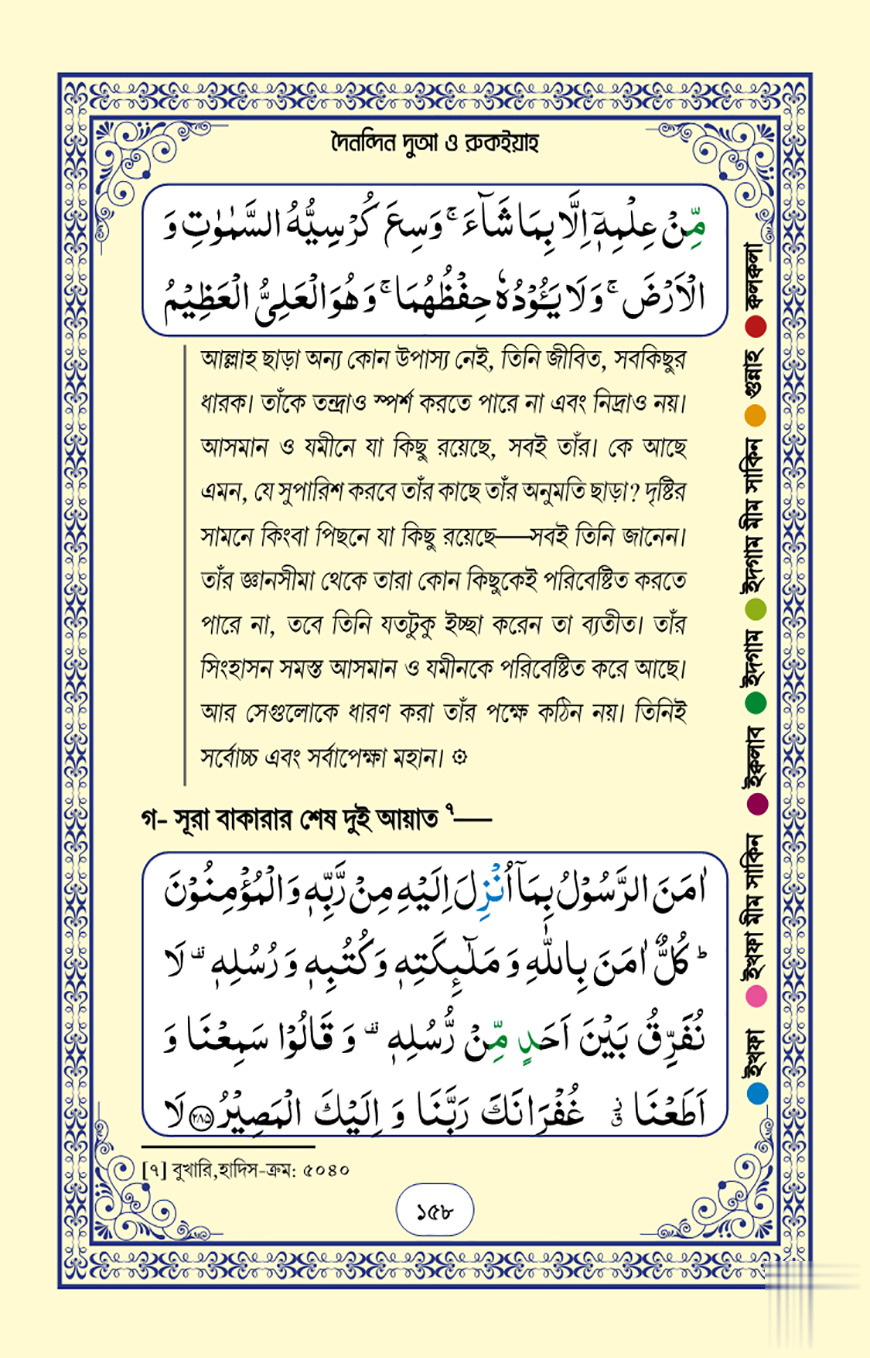 দৈনন্দিন দুআ ও রুকইয়াহ
مِّنْ عِلْمِهٖۤ اِلَّا بِمَا شَآءَ ۚ وَسِعَ كُرْسِيُّهُ السَّمٰوٰتِ وَ
الْاَرْضَ ۚ وَلَا يَـُٔوْدُهٗ حِفْظُهُمَا ۚ وَهُوَ الْعَلِىُّ الْعَظِيْمُ
আল্লাহ ছাড়া অন্য কোন উপাস্য নেই, তিনি জীবিত, সবকিছুর
ধারক। তাঁকে তন্দ্রাও স্পর্শ করতে পারে না এবং নিদ্রাও নয়।
আসমান ও যমীনে যা কিছু রয়েছে, সবই তাঁর। কে আছে
এমন, যে সুপারিশ করবে তাঁর কাছে তাঁর অনুমতি ছাড়া? দৃষ্টির
সামনে কিংবা পিছনে যা কিছু রয়েছে—সবই তিনি জানেন।
তাঁর জ্ঞানসীমা থেকে তারা কোন কিছুকেই পরিবেষ্টিত করতে
পারে না, তবে তিনি যতটুকু ইচ্ছা করেন তা ব্যতীত। তাঁর
সিংহাসন সমস্ত আসমান ও যমীনকে পরিবেষ্টিত করে আছে।
আর সেগুলোকে ধারণ করা তাঁর পক্ষে কঠিন নয়। তিনিই
সর্বোচ্চ এবং সর্বাপেক্ষা মহান। ۞
গ- সূরা বাকারার শেষ দুই আয়াত ৭—
اٰمَنَ الرَّسُوْلُ بِمَاۤ اُنْزِلَ اِلَيْهِ مِنْ رَّبِّهٖ وَالْمُؤْمِنُوْنَ
ؕ كُلٌّ اٰمَنَ بِاللّٰهِ وَ مَلٰٓئِكَتِهٖ وَكُتُبِهٖ وَ رُسُلِهٖ ۟ لَا
نُفَرِّقُ بَيْنَ اَحَدٍ مِّنْ رُّسُلِهٖ ۟ وَ قَالُوْا سَمِعْنَا وَ
اَطَعْنَا ۗ غُفْرَانَكَ رَبَّنَا وَ اِلَيْكَ الْمَصِيْرُ ﴿۲۸۵﴾ لَا
[৭] বুখারি,হাদিস-ক্রম: ৫০৪০
১৫৮
ইখফা
ইখফা মীম সাকিন
ইকলাব
ইদগাম
ইদগাম মীম সাকিন
গুন্নাহ
কলকলা